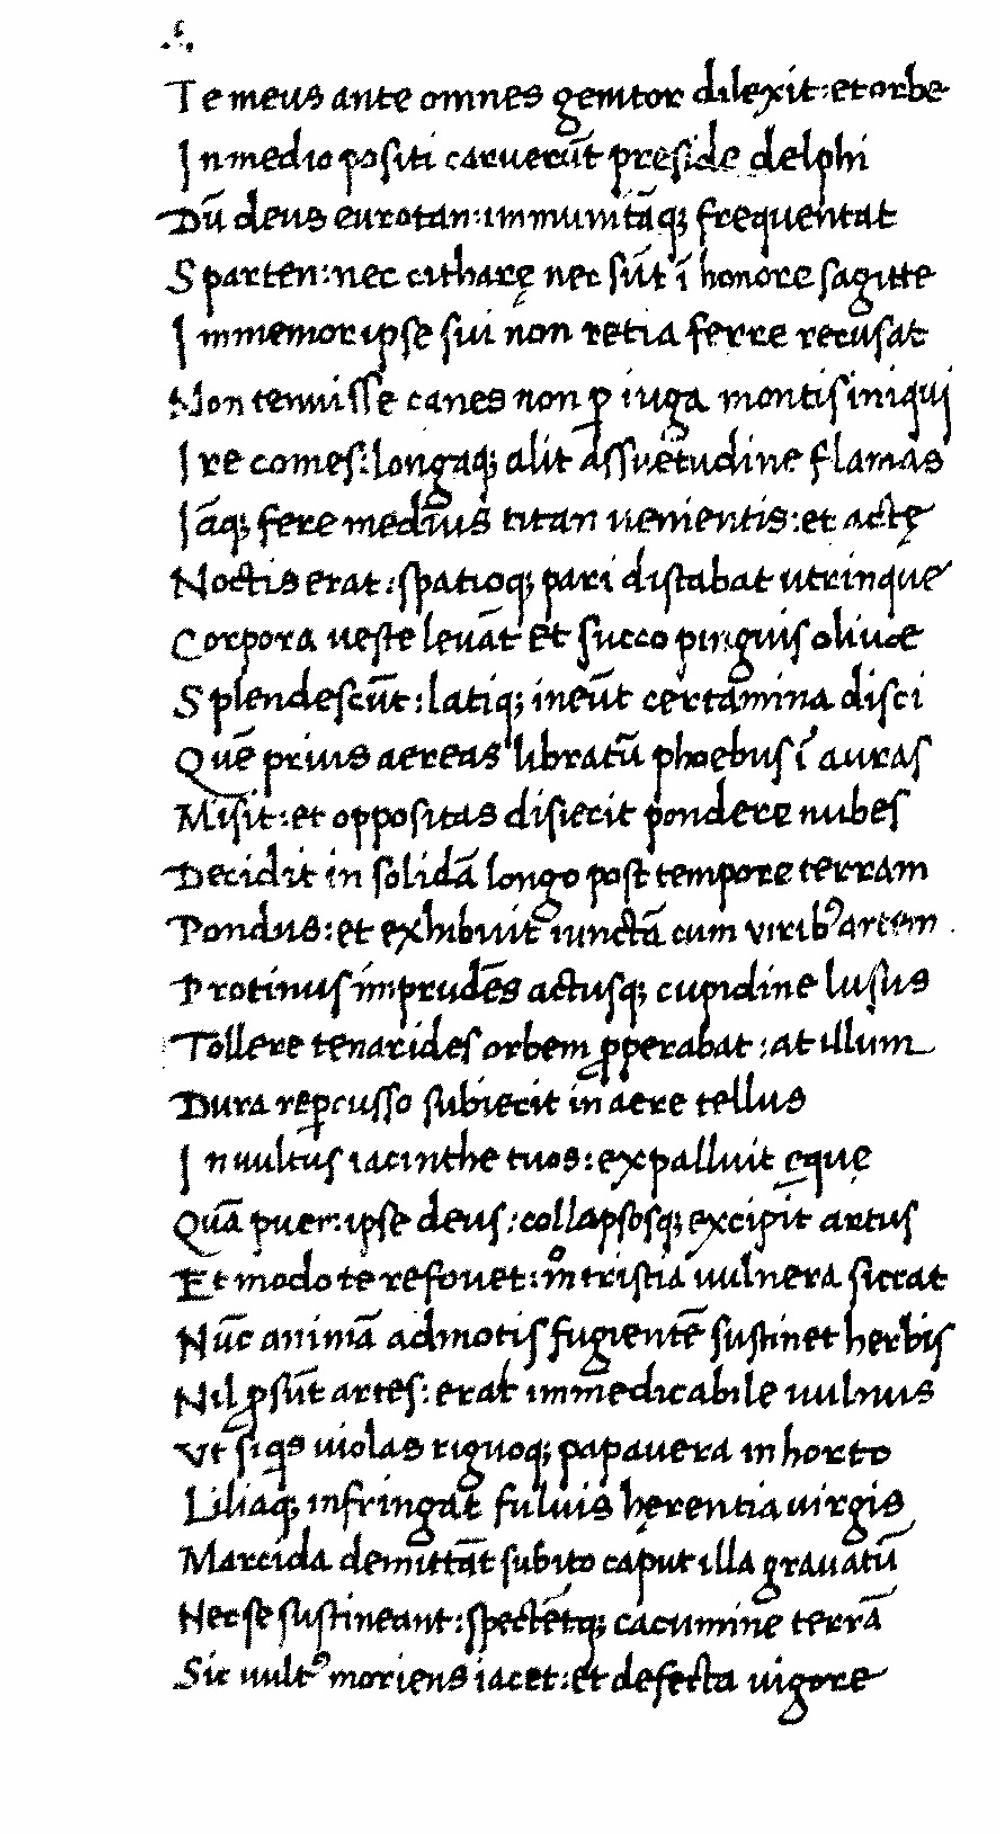 Te meus ante omnes genitor dilexit: et orbe
In medio positi caruerūt preside delphi
Dū deus eurotan: immunitāq; frequentat
Sparten: nec citharę nec sūt ī honore sagitte
Immemor ipse sui non retia ferre recusat
Non tenuisse canes non ꝑ iuga montis iniqui
Ire comes: longaq; alit assuetudine flamas
Iāq; fere medius titan uenientis: et actę
Noctis erat: spatioq; pari distabat utrinque
Corpora ueste leuāt et succo pinguis oliuae
Splendescūt: latiq; ineūt certamina disci
Quē prius aereas libratū phoebus ī auras
Misit: et oppositas disiecit pondere nubes
Decidit in solidā longo post tempore terram
Pondus: et exhibuit iunctā cum viribꝰ artem
Protinus imprudēs actusq; cupidine lusus
Tollere tenarides orbem ꝓperabat: at illum
Dura reꝑcusso subiecit in aere tellus
In uultus iacinthe tuos: expalluit ęque
Quā puer: ipse deus: collapsosq; excipit artus
Et modo te refouet: mͦ tristia uulnera siccat
Nūc animā admotis fugientē sustinet herbis
Nil ꝓsūt artes: erat immedicabile uulnus
Vt siqs uiolas riguoq; papauera in horto
Liliaq; infringat fuluis hęrentia uirgis
Marcida demittāt subito caput illa grauatū
Nec se sustineant: spectētq; cacumine terrā
Sic uultꝰ moriens iacet: et defecta uigore